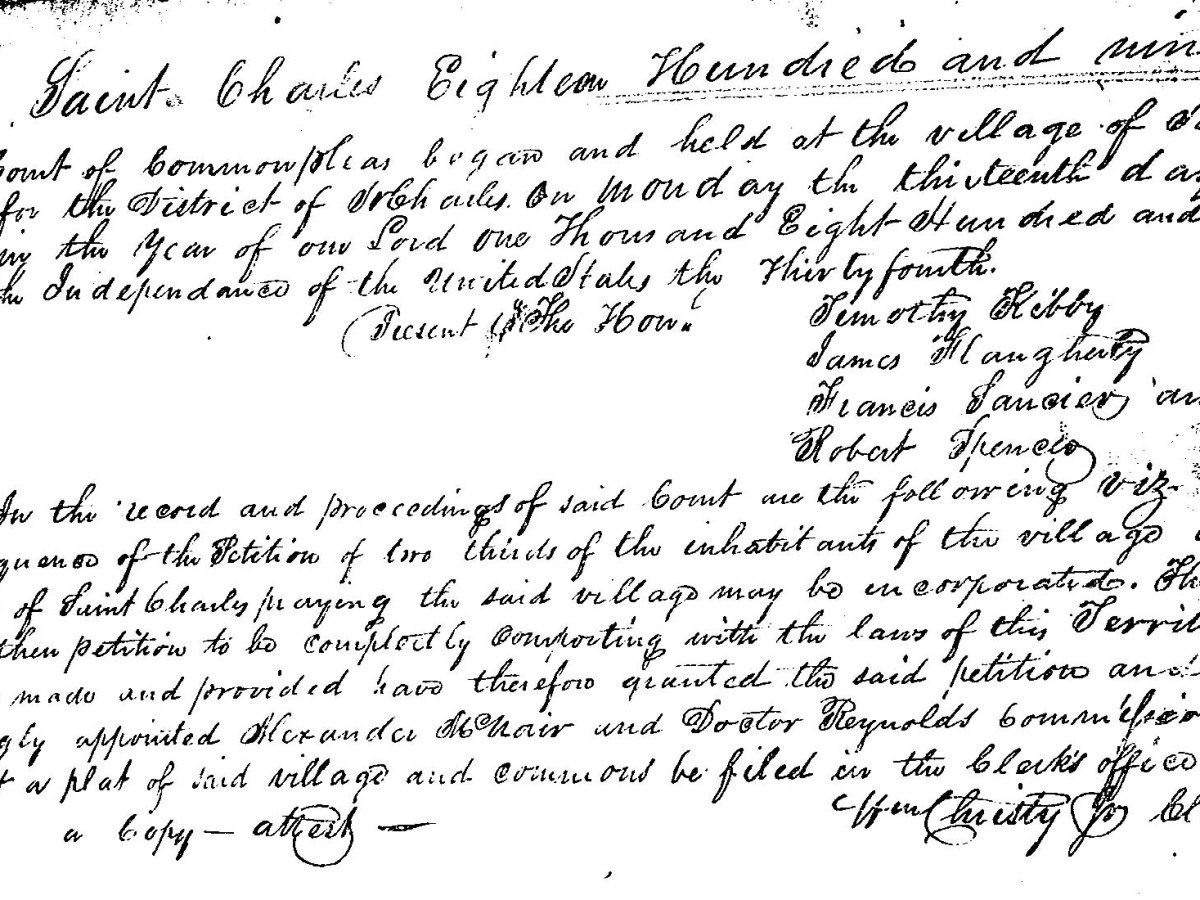 Saint Charles Eighteen Hundred and nin
Court of Common pleas began and held at the village of
for the District of St Charles. On Monday the thirteenth da
in the Year of our Lord One Thousand Eight Hundred and
the Independance of the United States the Thirty fourth.
Present The Hon.
Timothy Kibby
James Flaugherty
Francis Saucier an
Robert Spencer
In the record and proceedings of said Court are the following viz
quence of the Petition of two thirds of the inhabitants of the village
of Saint Charles praying the said village may be incorporated. Th
then petition to be completly comporting with the laws of this Territ
made and provided have therefore granted the said petition and
gly appointed Alexander McNair and Doctor Reynolds Commissio
t a plat of said village and commons be filed in the Clerk's office
Wm Christy Jr Cl
a Copy — attest —